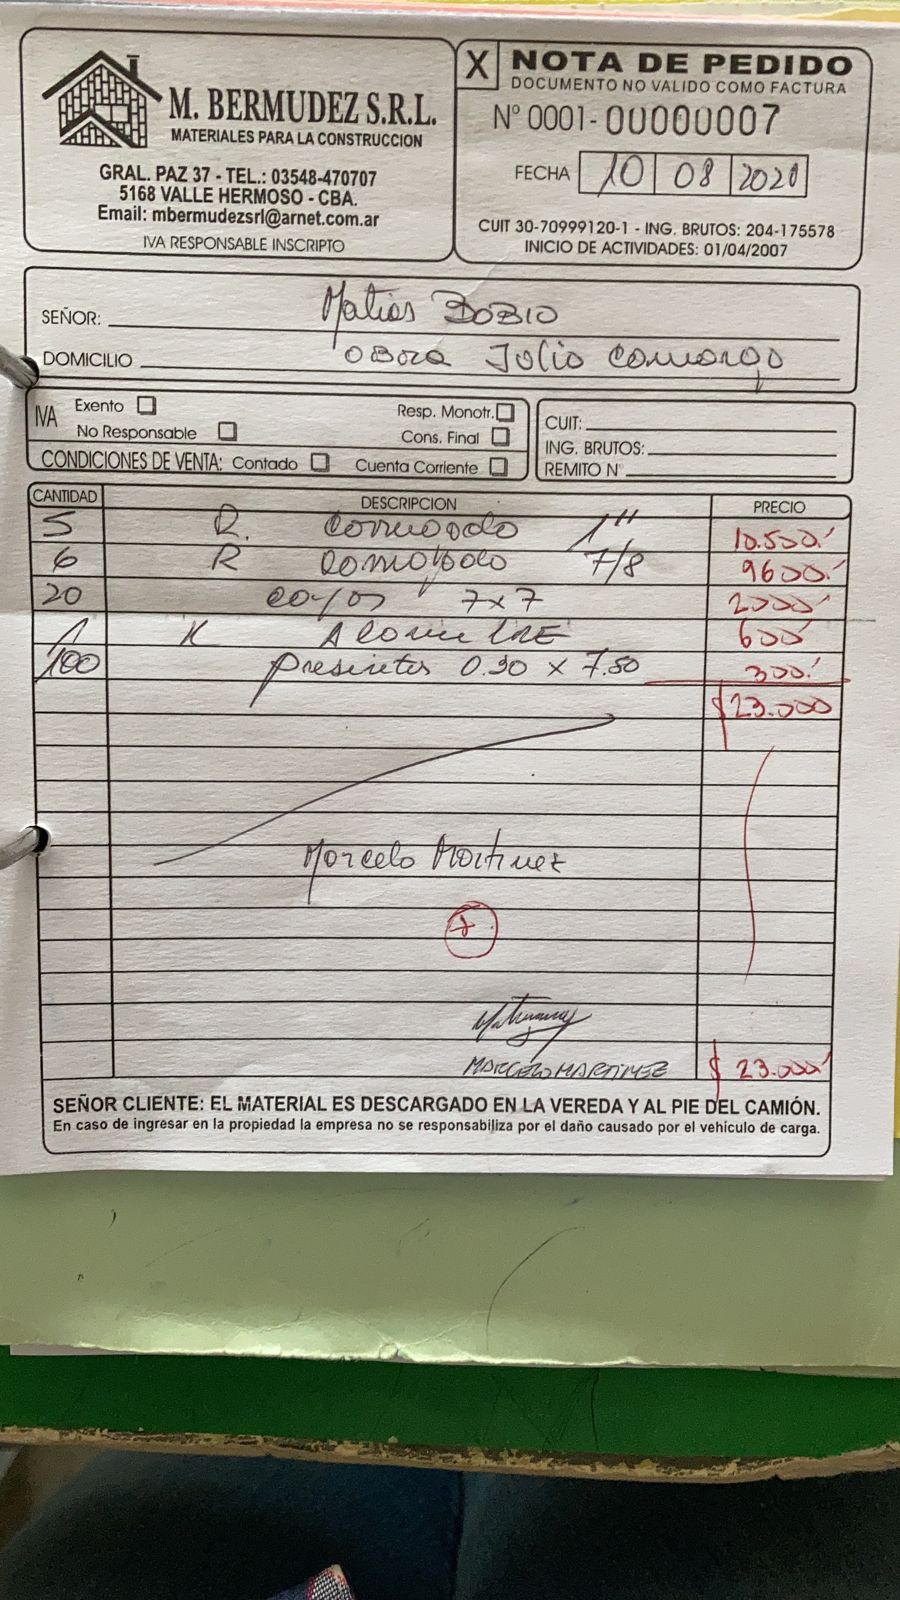 M. BERMUDEZ S.R.L.
MATERIALES PARA LA CONSTRUCCION
GRAL. PAZ 37 - TEL.: 03548-470707
5168 VALLE HERMOSO - CBA.
Email: mbermudezsrl@arnet.com.ar
IVA RESPONSABLE INSCRIPTO
X NOTA DE PEDIDO
DOCUMENTO NO VALIDO COMO FACTURA
N° 0001-00000007
FECHA 10 08 2020
CUIT 30-70999120-1 - ING. BRUTOS: 204-175578
INICIO DE ACTIVIDADES: 01/04/2007
SEÑOR: Matias BOBIO
DOMICILIO OBRA Julio Camargo
IVA Exento Resp. Monotr.
No Responsable Cons. Final
CONDICIONES DE VENTA: Contado Cuenta Corriente
CUIT:
ING. BRUTOS:
REMITO N°
CANTIDAD DESCRIPCION PRECIO
5 R. corrugado 1" 10.500
6 R corrugado 7/8 9600
20 caños 7x7 2000
1 K Alambre 600
100 presintos 0.30 x 7.80 300
$23.000
Marcelo Martinez
MARCELO MARTINEZ $ 23.000
SEÑOR CLIENTE: EL MATERIAL ES DESCARGADO EN LA VEREDA Y AL PIE DEL CAMIÓN.
En caso de ingresar en la propiedad la empresa no se responsabiliza por el daño causado por el vehículo de carga.